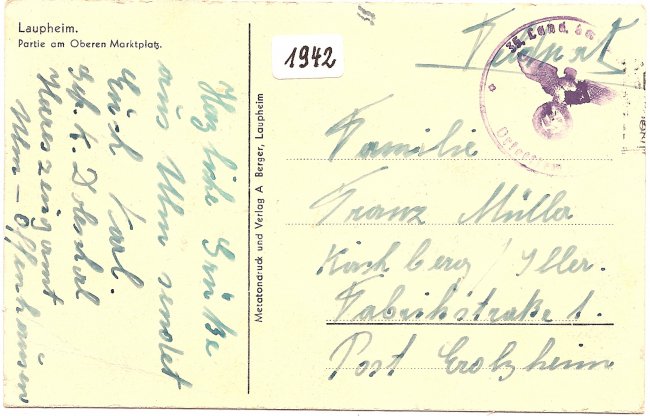 Laupheim.
Partie am Oberen Marktplatz.
1942
Herzliche Grüße
aus Ulm sendet
Euch Karl.
Gefr. K. Doleschal
Heereszeugamt
Ulm – Offenhausen
Metatondruck und Verlag A Berger, Laupheim
Feldpost
Land.
Familie
Franz Müller
Kirchberg / Iller.
Fabrikstraße 1.
Post Erolzheim